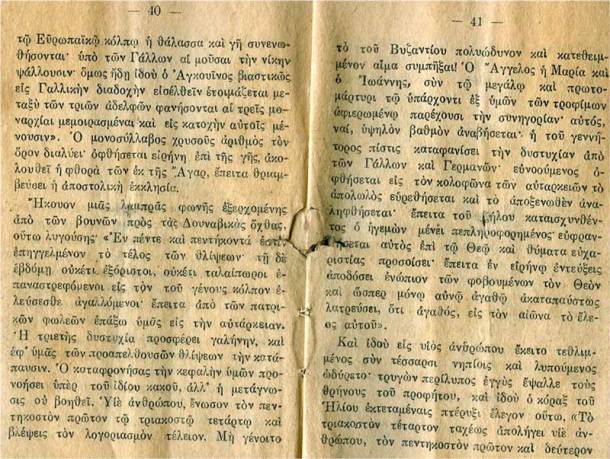 — 40 —
τῷ Εὐρωπαϊκῷ κόλπῳ ἡ θάλασσα καὶ γῆ συνενω-
θήσονται· ὑπὸ τῶν Γάλλων αἱ μοῦσαι τὴν νίκην
ψάλλουσιν· ὅμως ἤδη ἰδοὺ ὁ Ἀγκουῖνος βιαστικῶς
εἰς Γαλλικὴν διαδοχὴν εἰσέλθειν ἑτοιμάζεται με-
ταξὺ τῶν τριῶν ἀδελφῶν φανήσονται αἱ τρεῖς μο-
ναρχίαι μεμοιρασμέναι καὶ εἰς κατοχὴν αὐτοῖς μέ-
νουσιν». Ὁ μονοσύλλαβος χρυσοῦς ἀριθμὸς τὸν
ὅρον διαλύει· ὀφθήσεται εἰρήνη ἐπὶ τῆς γῆς, ἀκο-
λουθεῖ ἡ φθορὰ τῶν ἐκ τῆς Ἄγαρ, ἔπειτα θριαμ-
βεύσει ἡ ἀποστολικὴ ἐκκλησία.
Ἤκουον μιᾶς λαμπρᾶς φωνῆς ἐξερχομένης
ἀπὸ τῶν βουνῶν πρὸς τὰς Δουναβικὰς ὄχθας,
οὕτω λυγούσης· «Ἐν πέντε καὶ πεντήκοντά ἐστιν
ἐπηγγελμένον τὸ τέλος τῶν θλίψεων· τῇ δὲ
ἑβδόμῃ οὐκέτι ἐξόριστοι, οὐκέτι ταλαίπωροι ἐ-
παναστρεφόμενοι εἰς τὸν τοῦ γένους κόλπον ἐ-
λεύσεσθε ἀγαλλόμενοι· ἔπειτα ἀπὸ τῶν πατρι-
κῶν φωλεῶν ἐπάξω ὑμᾶς εἰς τὴν αὐτάρκειαν.
Ἡ τριετὴς δυστυχία προσφέρει γαλήνην, καὶ
ἐφ' ὑμᾶς τῶν προσπελθουσῶν θλίψεων τὴν κατά-
παυσιν. Ὁ καταφρονήσας τὴν κεφαλὴν ὑμῶν προ-
νοήσει ὑπὲρ τοῦ ἰδίου κακοῦ, ἀλλ' ἡ μετάγνω-
σις οὐ βοηθεῖ. Υἱὲ ἀνθρώπου, ἕνωσον τὸν πεν-
τηκοστὸν πρῶτον τῷ τριακοστῷ τετάρτῳ καὶ
βλέψεις τὸν λογοριασμὸν τέλειον. Μὴ γένοιτο
— 41 —
τὸ τοῦ Βυζαντίου πολυώδυνον καὶ κατεθειμ-
μένον αἷμα συμπῆξαι! Ὁ Ἄγγελος ἡ Μαρία καὶ
ὁ Ἰωάννης, σὺν τῷ μεγάλῳ καὶ πρωτο-
μάρτυρι τῷ ὑπάρχοντι ἐξ ὑμῶν τῶν τροφίμων
ἀφιερωμένῳ παρέχουσι τὴν συνηγορίαν· αὐτός,
ναί, ὑψηλὸν βαθμὸν ἀναβήσεται· ἡ τοῦ γεννή-
τορος πίστις καταφανίσει τὴν δυστυχίαν ἀπὸ
τῶν Γάλλων καὶ Γερμανῶν· εὐνοούμενος ὀ-
φθήσεται εἰς τὸν κολοφῶνα τῶν αὐταρκειῶν τὸ
ἀπόλωλὸς εὑρεθήσεται καὶ τὸ ἀποξενωθὲν ἀνα-
ληφθήσεται· ἔπειτα τοῦ πήλου κατασχυνθέν-
τος ὁ ἡγεμὼν μένει πεπληροφορημένος· εὐφραν-
θήσεται αὐτὸς ἐπὶ τῷ Θεῷ καὶ θύματα εὐχα-
ριστίας προσοίσει· ἔπειτα ἐν εἰρήνῃ ἐντεύξεις
ἀποδόσει ἐνώπιον τῶν φοβουμένων τὸν Θεὸν
καὶ ὥσπερ μόνῳ αὐνῷ ἀγαθῷ ἀκαταπαύστως
λατρεύσει, ὅτι ἀγαθός, εἰς τὸν αἰῶνα τὸ ἔλε-
ος αὐτοῦ».
Καὶ ἰδοὺ εἰς υἱὸς ἀνθρώπου ἔκειτο τεθλιμ-
μένος σὺν τέσσαρσι νηπίοις καὶ λυπούμενος
ὠδύρετο· τρυγὼν περίλυπος ἐγγὺς ἔψαλλε τοὺς
θρήνους τοῦ προφήτου, καὶ ἰδοὺ ὁ κόραξ τοῦ
Ἠλίου ἐκτεταμέναις πτέρυξι ἔλεγον οὕτω, «Τὸ
τριακοστὸν τέταρτον ταχέως ἀπολήγει υἱὲ ἀν-
θρώπου, τὸν πεντηκοστὸν πρῶτον καὶ δεύτερον